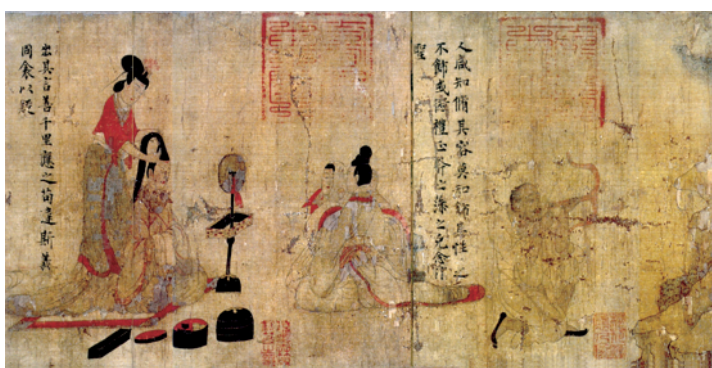 人咸知脩其容莫知飾其性〻之
不飾或愆禮正斧之藻之克念作
聖
出其言善千里應之苟違斯義
同衾以疑